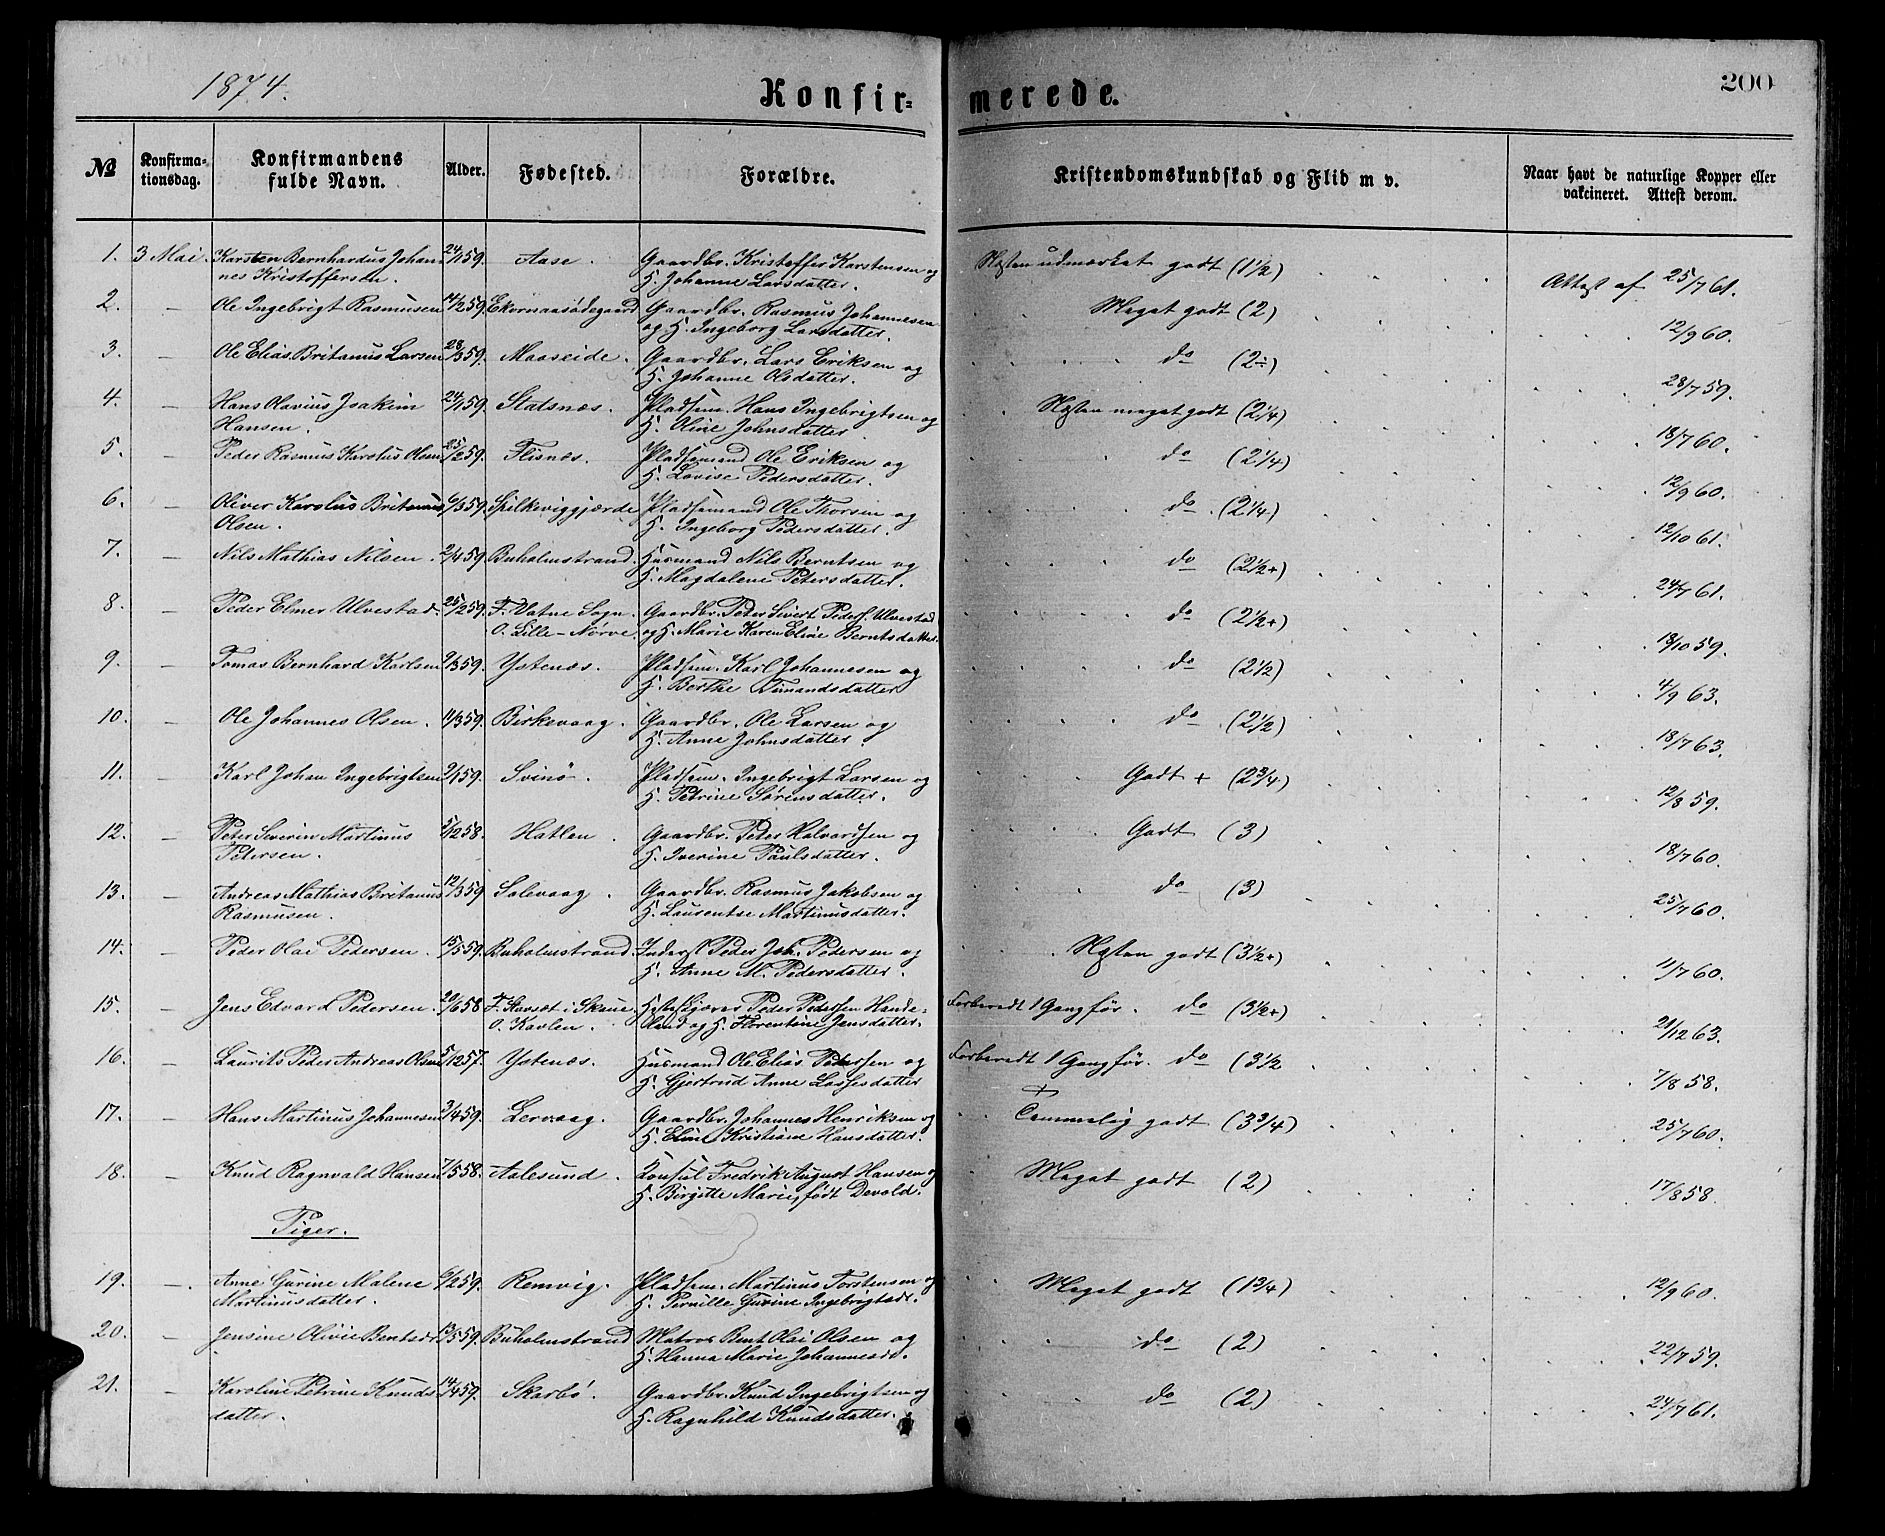 1874.
Konfir=
merede.
200
№
Konfirma-
tionsdag.
Konfirmandens
fulde Navn.
Alder.
Fødested.
Forældre.
Kristendomskundskab og Flid m v.
Naar havt de naturlige Kopper eller
vakcineret. Attest derom.
1. 3 Mai. Karsten Bernhardus Johan= 24/1 59. Aase. Gaardbr. Kristoffer Karstensen og Næsten udmærket godt (1½) Attest af 25/7 61.
nes Kristoffersen. H. Johanne Larsdatter.
2. — Ole Ingebrigt Rasmusen 14/2 59. Ekornaasødegaard Gaardbr. Rasmus Johannesen Meget godt (2) 12/9 60.
og H. Ingeborg Larsdatter.
3. — Ole Elias Britanus Larsen 28/3 59. Maaseide. Gaardbr. Lars Eriksen og do (2÷) 28/7 59.
H. Johanne Olsdatter.
4. — Hans Olavius Joakim 24/1 59. Statsnæs. Pladsm. Hans Ingebrigtsen og Næsten meget godt (2¼) 18/7 60.
Hansen. H. Oline Johnsdatter
5. — Peder Rasmus Karolus Olsen 25/2 59. Flisnæs. Pladsmand Ole Eriksen og do (2¼) 12/9 60.
H. Lovise Pedersdatter.
6. — Oliver Karolus Britanus 6/3 59. Spilkeviggjærde Pladsmand Ole Thorsen og do. (2¼) 12/10 61.
Olsen. H. Ingeborg Pedersdatter.
7. — Nils Mathias Nilsen. 2/4 59. Buholmstrand. Husmand Nils Berntsen og do (2½+) 24/7 61.
H. Magdalene Pedersdatter.
8. — Peder Elmer Ulvestad. 25/2 59. F. Vatne Sogn. Gaardbr. Peter Sivert Peders. Ulvestad do (2½+) 18/10 59.
O. Lille-Nørve og H. Marie Karen Eline Berntsdatter.
9. — Tomas Bernhard Karlsen 9/3 59. Ystenæs. Pladsm. Karl Johannesen og do (2½) 4/9 63.
H. Berthe Timandsdatter
10. — Ole Johannes Olsen. 11/3 59. Birkevaag. Gaardbr. Ole Larsen og do (2½) 18/7 63.
H. Anne Johnsdatter.
11. — Karl Johan Ingebrigtsen 9/1 59. Svinø. Pladsm. Ingebrigt Larsen og Godt + (2¾) 12/8 59.
H. Petrine Sørensdatter.
12. — Peter Severin Martinus 5/12 58. Hatlen. Gaardbr. Peder Halvardsen og Godt (3) 18/7 60.
Petersen. H. Iverine Paulsdatter.
13. — Andreas Mathias Britanus 12/3 59 Solevaag. Gaardbr. Rasmus Jakobsen og do (3) 25/7 60.
Rasmusen. H. Laurentse Martinusdatter.
14. — Peder Olai Pedersen. 15/5 59. Buholmstrand. Inderst Peder Joh. Pedersen og Næsten godt (3½+) 11/7 60.
H. Anne M. Pedersdatter.
15. — Jens Edvard Pedersen. 20/6 58 F. Stavset i Skeue. Peder Pedersen Hande= Forberedt 1 Gang før. do (3½+) 21/12 63.
O. Kavlen. land og H. Florentine Jensdatter.
16. — Laurits Peder Andreas Olsen 5/12 57. Ystenæs. Husmand Ole Elias Petersen og Forberedt 1 Gang før. do (3½ 7/8 58.
H. Gjertrud Anne Lassesdatter +
17. — Hans Martinus Johannesen 3/4 59. Lervaag. Gaardbr. Johannes Henriksen og Temmelig godt (3¾) 25/7 60.
H. Eline Kristiane Hansdatter.
18. — Knud Ragnvald Hansen 7/5 58. Aalesund. Konsul Fredrik August Hansen og Meget godt (2) 17/8 58.
H. Birgitte Marie, født Devold.
Piger.
19. — Anne Gurine Malene 6/2 59. Remvig. Pladsm. Martinus Torstensen og Meget godt (1¾) 12/9 60.
Martinusdatter. H. Pernille Gurine Ingebrigtsdt.
20. — Jensine Olivie Bentsdr. 13/5 59. Buholmstrand Matros Bent Olai Olsen og do (2) 22/7 59.
H. Hanna Marie Johannesdr.
21. — Karoline Petrine Knuds 14/4 59. Skarbø. Gaardbr. Knud Ingebrigtsen og do (2) 24/7 61.
datter. H. Ragnhild Knudsdatter.